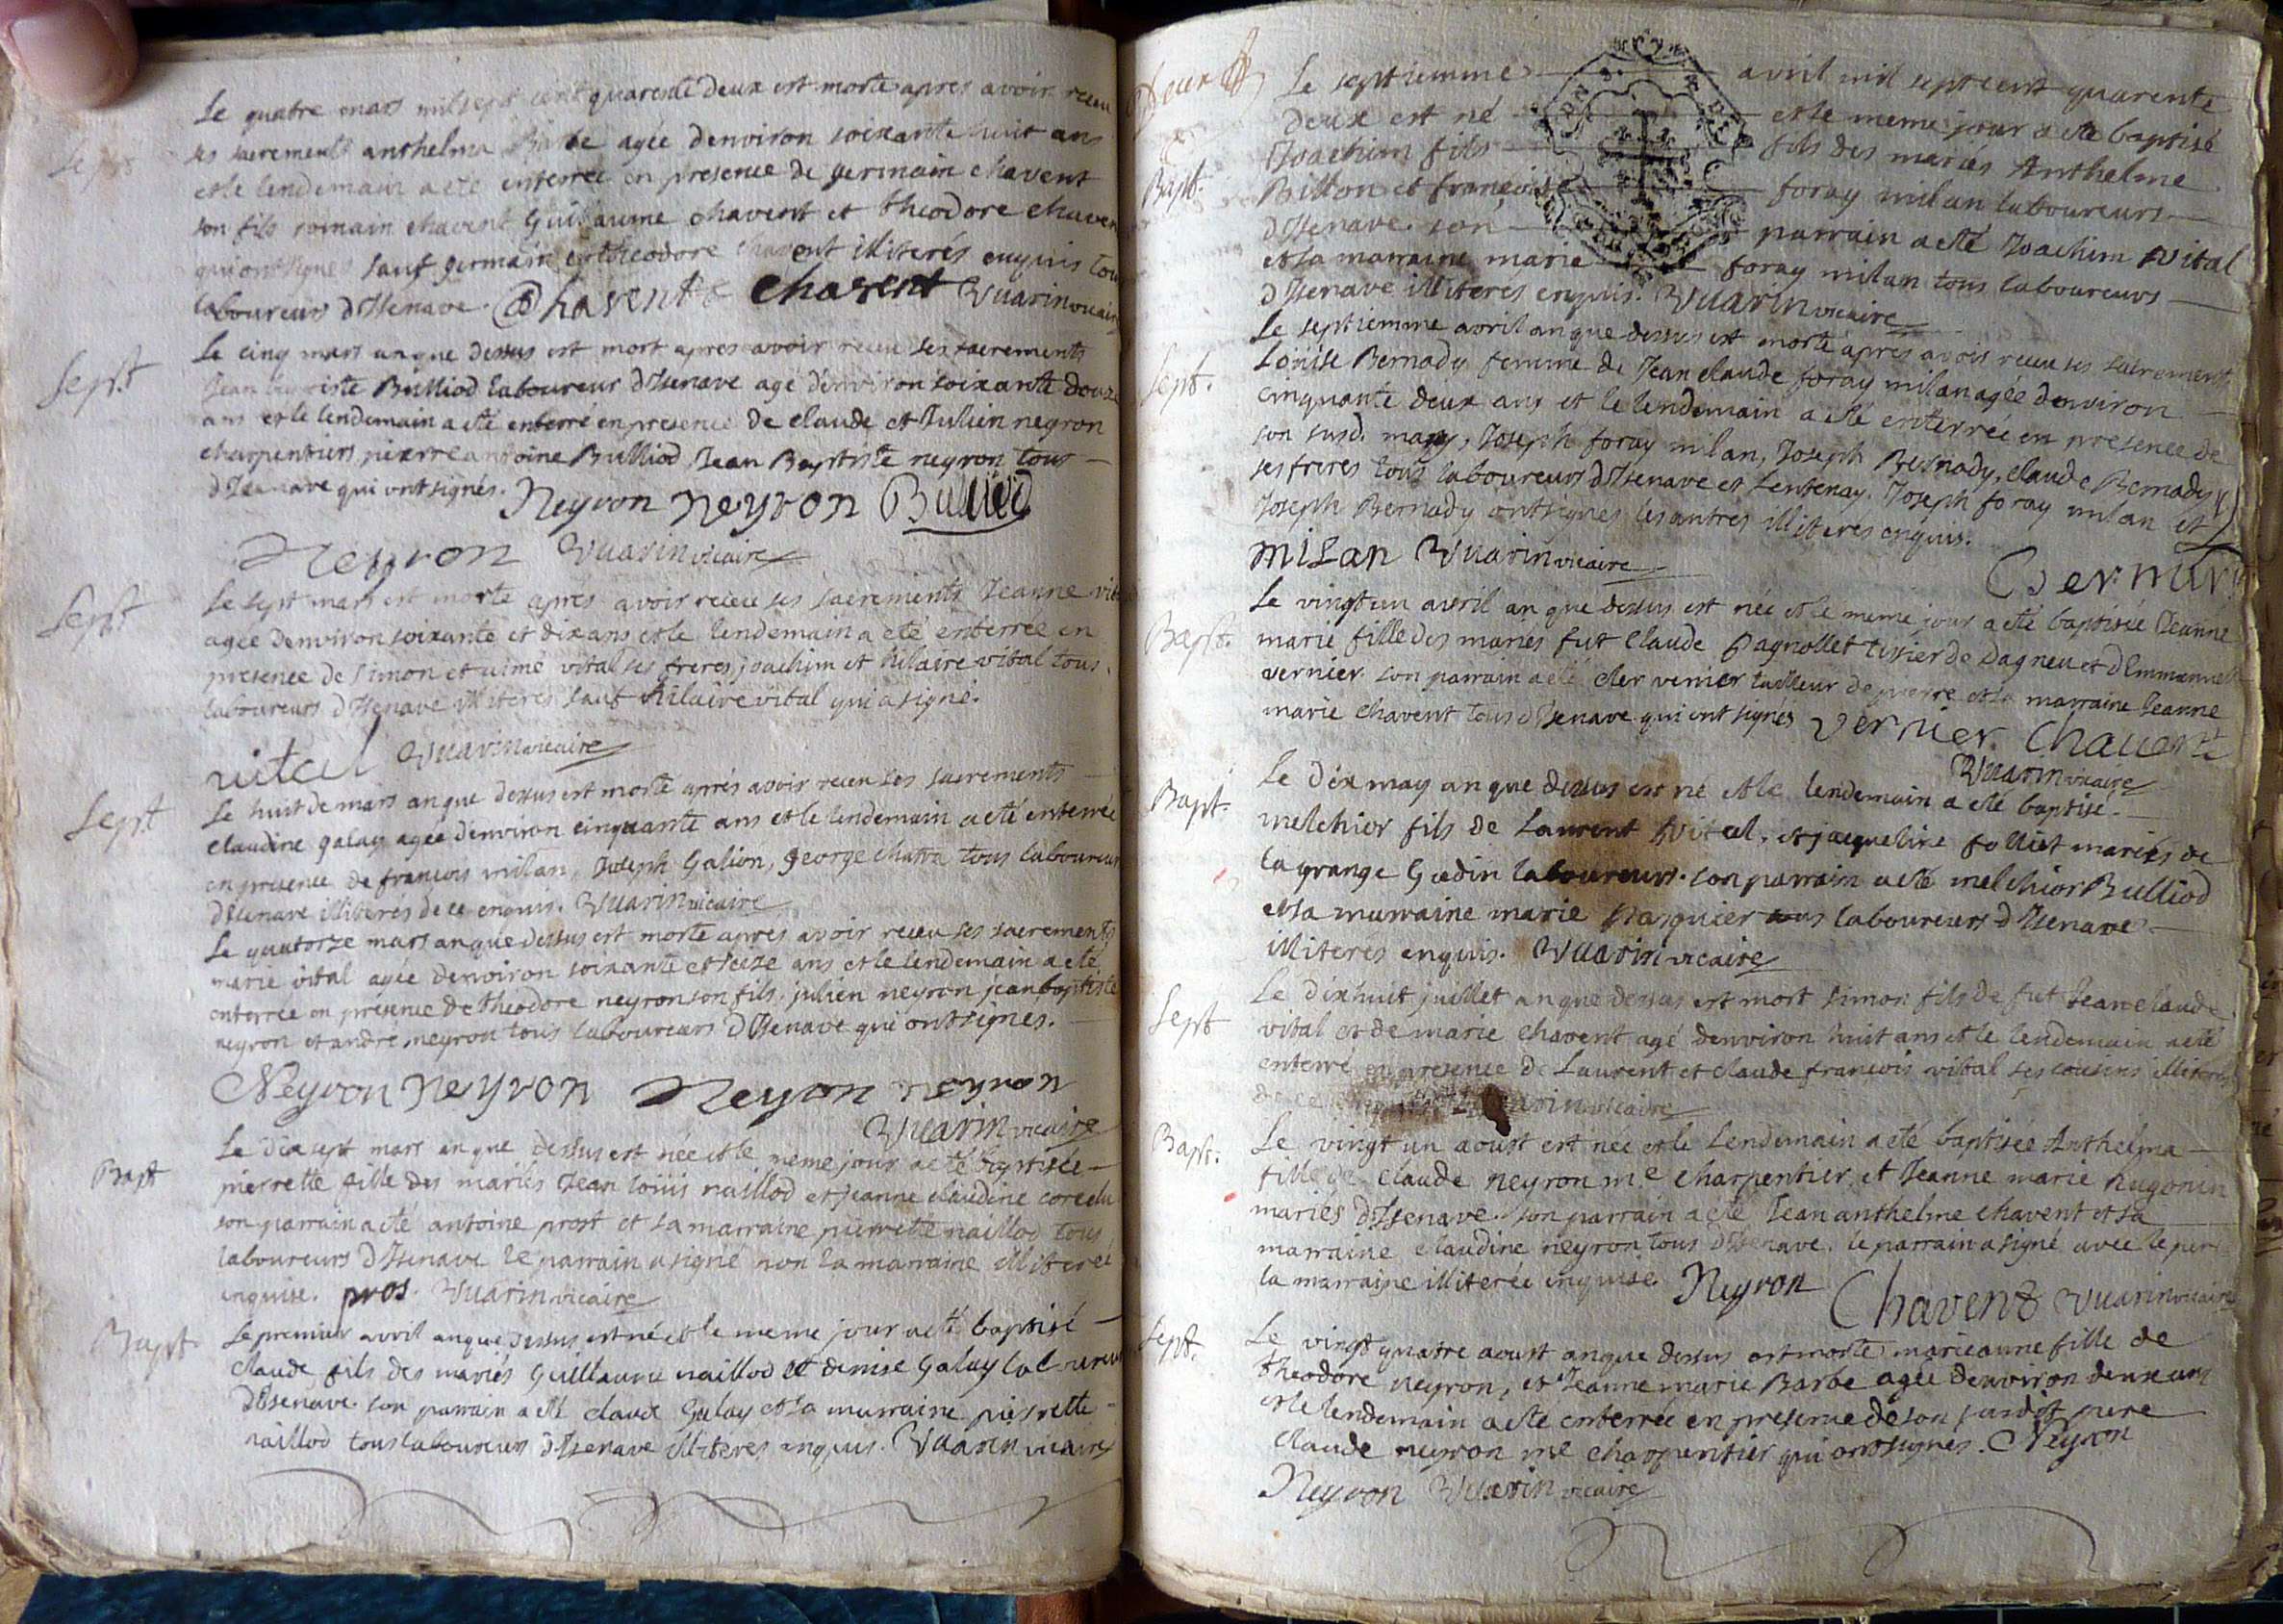 Le quatre mars mil sept cent quarente deux est morte apres avoir receu
Sept
ses sacrements anthelma Barbe agée denviron soixante huit ans
et le lendemain a eté enterrée en presence de germain chavent
son fils romain chavent Guillaume chavent et theodore chavent
qui ont signes sauf germain et theodore chavent illiterés enquis tous
laboureurs dIsenave. Chavent chavent Vuarin vicaire
Sept
Le cinq mars an que dessus est mort apres avoir receu ses sacrements
Jean baptiste Bulliod laboureur dIsenave agé denviron soixante douze
ans et le lendemain a eté enterré en presence de claude et Julien neyron
charpentiers pierre antoine Bulliod, Jean Baptiste neyron tous
dIsenave qui ont signés. Neyron neyron Bulliod
Neyron Vuarin vicaire
Sept
Le sept mars est morte aprés avoir receu ses sacrements Jeanne vital
agée denviron soixante et dix ans et le lendemain a eté enterrée en
presence de Simon et aimé vital ses freres, joachim et hilaire vital tous
laboureurs dIsenave illiteres sauf hilaire vital qui a signé.
vital Vuarin vicaire
Sept
Le huit de mars an que dessus est morte aprés avoir receu ses sacrements
claudine galay agée denviron cinquante ans et le lendemain a eté enterrée
en presence de francois milan, Joseph Galion, george tous laboureurs
dIsenave illiterés de ce enquis. Vuarin vicaire
Le quatorze mars an que dessus est morte apres avoir receu ses sacrements
marie vital agée denviron soixante et seize ans et le lendemain a eté
enterrée en présence de theodore neyron son fils, julien neyron jean baptiste
neyron et andré neyron tous laboureurs dIsenave qui ont signes.
Neyron neyron Neyron neyron
Vuarin vicaire
Bapt
Le dix sept mars an que dessus est née et le meme jour a eté baptisée
pierrette fille des mariés Jean loüis naillod et jeanne claudine
son parrain a eté antoine prost et sa marraine pierrette naillod tous
laboureurs dIsenave le parrain a signé non la marraine illiterée
enquise. pros. Vuarin vicaire
Bapt
Le premier avril an que dessus est né et le meme jour a eté baptisé
claude fils des mariés Guillaume naillod et denise Galay laboureurs
dIsenave. son parrain a eté claude Galay et sa marraine pierrette
naillod tous laboureurs dIsenave illiteres enquis. Vuarin vicaire
Le septiemme avril mil sept cent quarente
deux est né et le meme jour a eté baptisé
Bapt.
Joachim fils fils des mariés Anthelme
Billon et francoise foray milan laboureurs
dIsenave. son parrain a eté Joachim Vital
et sa marraine marie foray milan tous laboureurs
dIsenave illiteres enquis. Vuarin vicaire
Le septiemme avril an que dessus est morte apres avoir receu ses sacrements
Sept.
Loüise Bernady femme de Jean claude foray milan agée denviron
cinquante deux ans et le lendemain a eté enterrée en presence de
son susd. mary, Joseph foray milan, Joseph Bernady, claude Bernady
ses freres tous laboureurs dIsenave et Lentenay. Joseph foray milan et
Joseph Bernady ont signés les autres illiteres enquis.
milan Vuarin vicaire
Le vingt un avril an que dessus est née et le meme jour a eté baptisée Jeanne
Bapt.
marie fille des mariés fut claude Pagnollet tixier de Dagneu et dEmmanuelle
vernier son parrain a eté cler vernier tailleur de pierre et sa marraine Jeanne
marie Chavent tous dIsenave qui ont signés vernier Chavent
Vuarin vicaire
Bapt.
Le dix may an que dessus est né et le lendemain a eté baptisé
melchior fils de Laurent Vital, et jacqueline folliet mariés de
la grange Gœdin laboureurs. son parrain a eté melchior Bulliod
et sa marraine marie pasquier tous laboureurs dIsenave
illiteres enquis. Vuarin vicaire
Sept
Le dixhuit juillet an que dessus est mort simon fils de fut Jean claude
vital et de marie chavent agé denviron huit ans et le lendemain a eté
enterré en presence de Laurent et claude francois vital ses cousins illiteres
de ce Vuarin vicaire
Bapt.
Le vingt un aoust est née et le lendemain a eté baptisée Anthelma
fille de claude neyron me charpentier, et Jeanne marie hugonin
mariés dIsenave. son parrain a eté Jean anthelme chavent et sa
marraine claudine neyron tous dIsenave. le parrain a signé avec le pere
la marraine illiterée enquise. Neyron Chavent Vuarin vicaire
Sept.
Le vingt quatre aoust an que dessus est morte marieanne fille de
theodore neyron, et Jeanne marie Barbe agée denviron deux ans
et le lendemain a eté enterrée en presence de son susdit pere
claude neyron me charpentier qui ont signés. Neyron
Neyron Vuarin vicaire